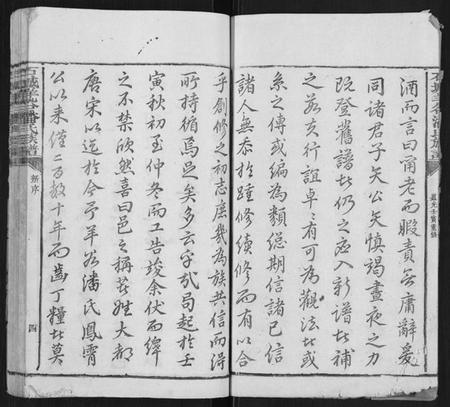 酒而言曰甯老而暇責無庸辭爰
同諸君子矢公矢慎竭晝夜之力
既登舊譜此仍之應入新譜此補
之若夫行誼卓卓有可為觀法此或
系之傳或編為類總期信諸己信
諸人無忝於踵修續修而有以合
乎創修之初志庶幾為族共信而得
所持循焉是矣多云乎哉局起於壬
寅秋初至仲冬而工告竣余伏而繹
之不禁欣然喜曰邑之稱著姓大都
唐宋以迄於今予羊谷潘氏鳳霄
公以來僅二百數十年而齒丁糧此莫
新序
四